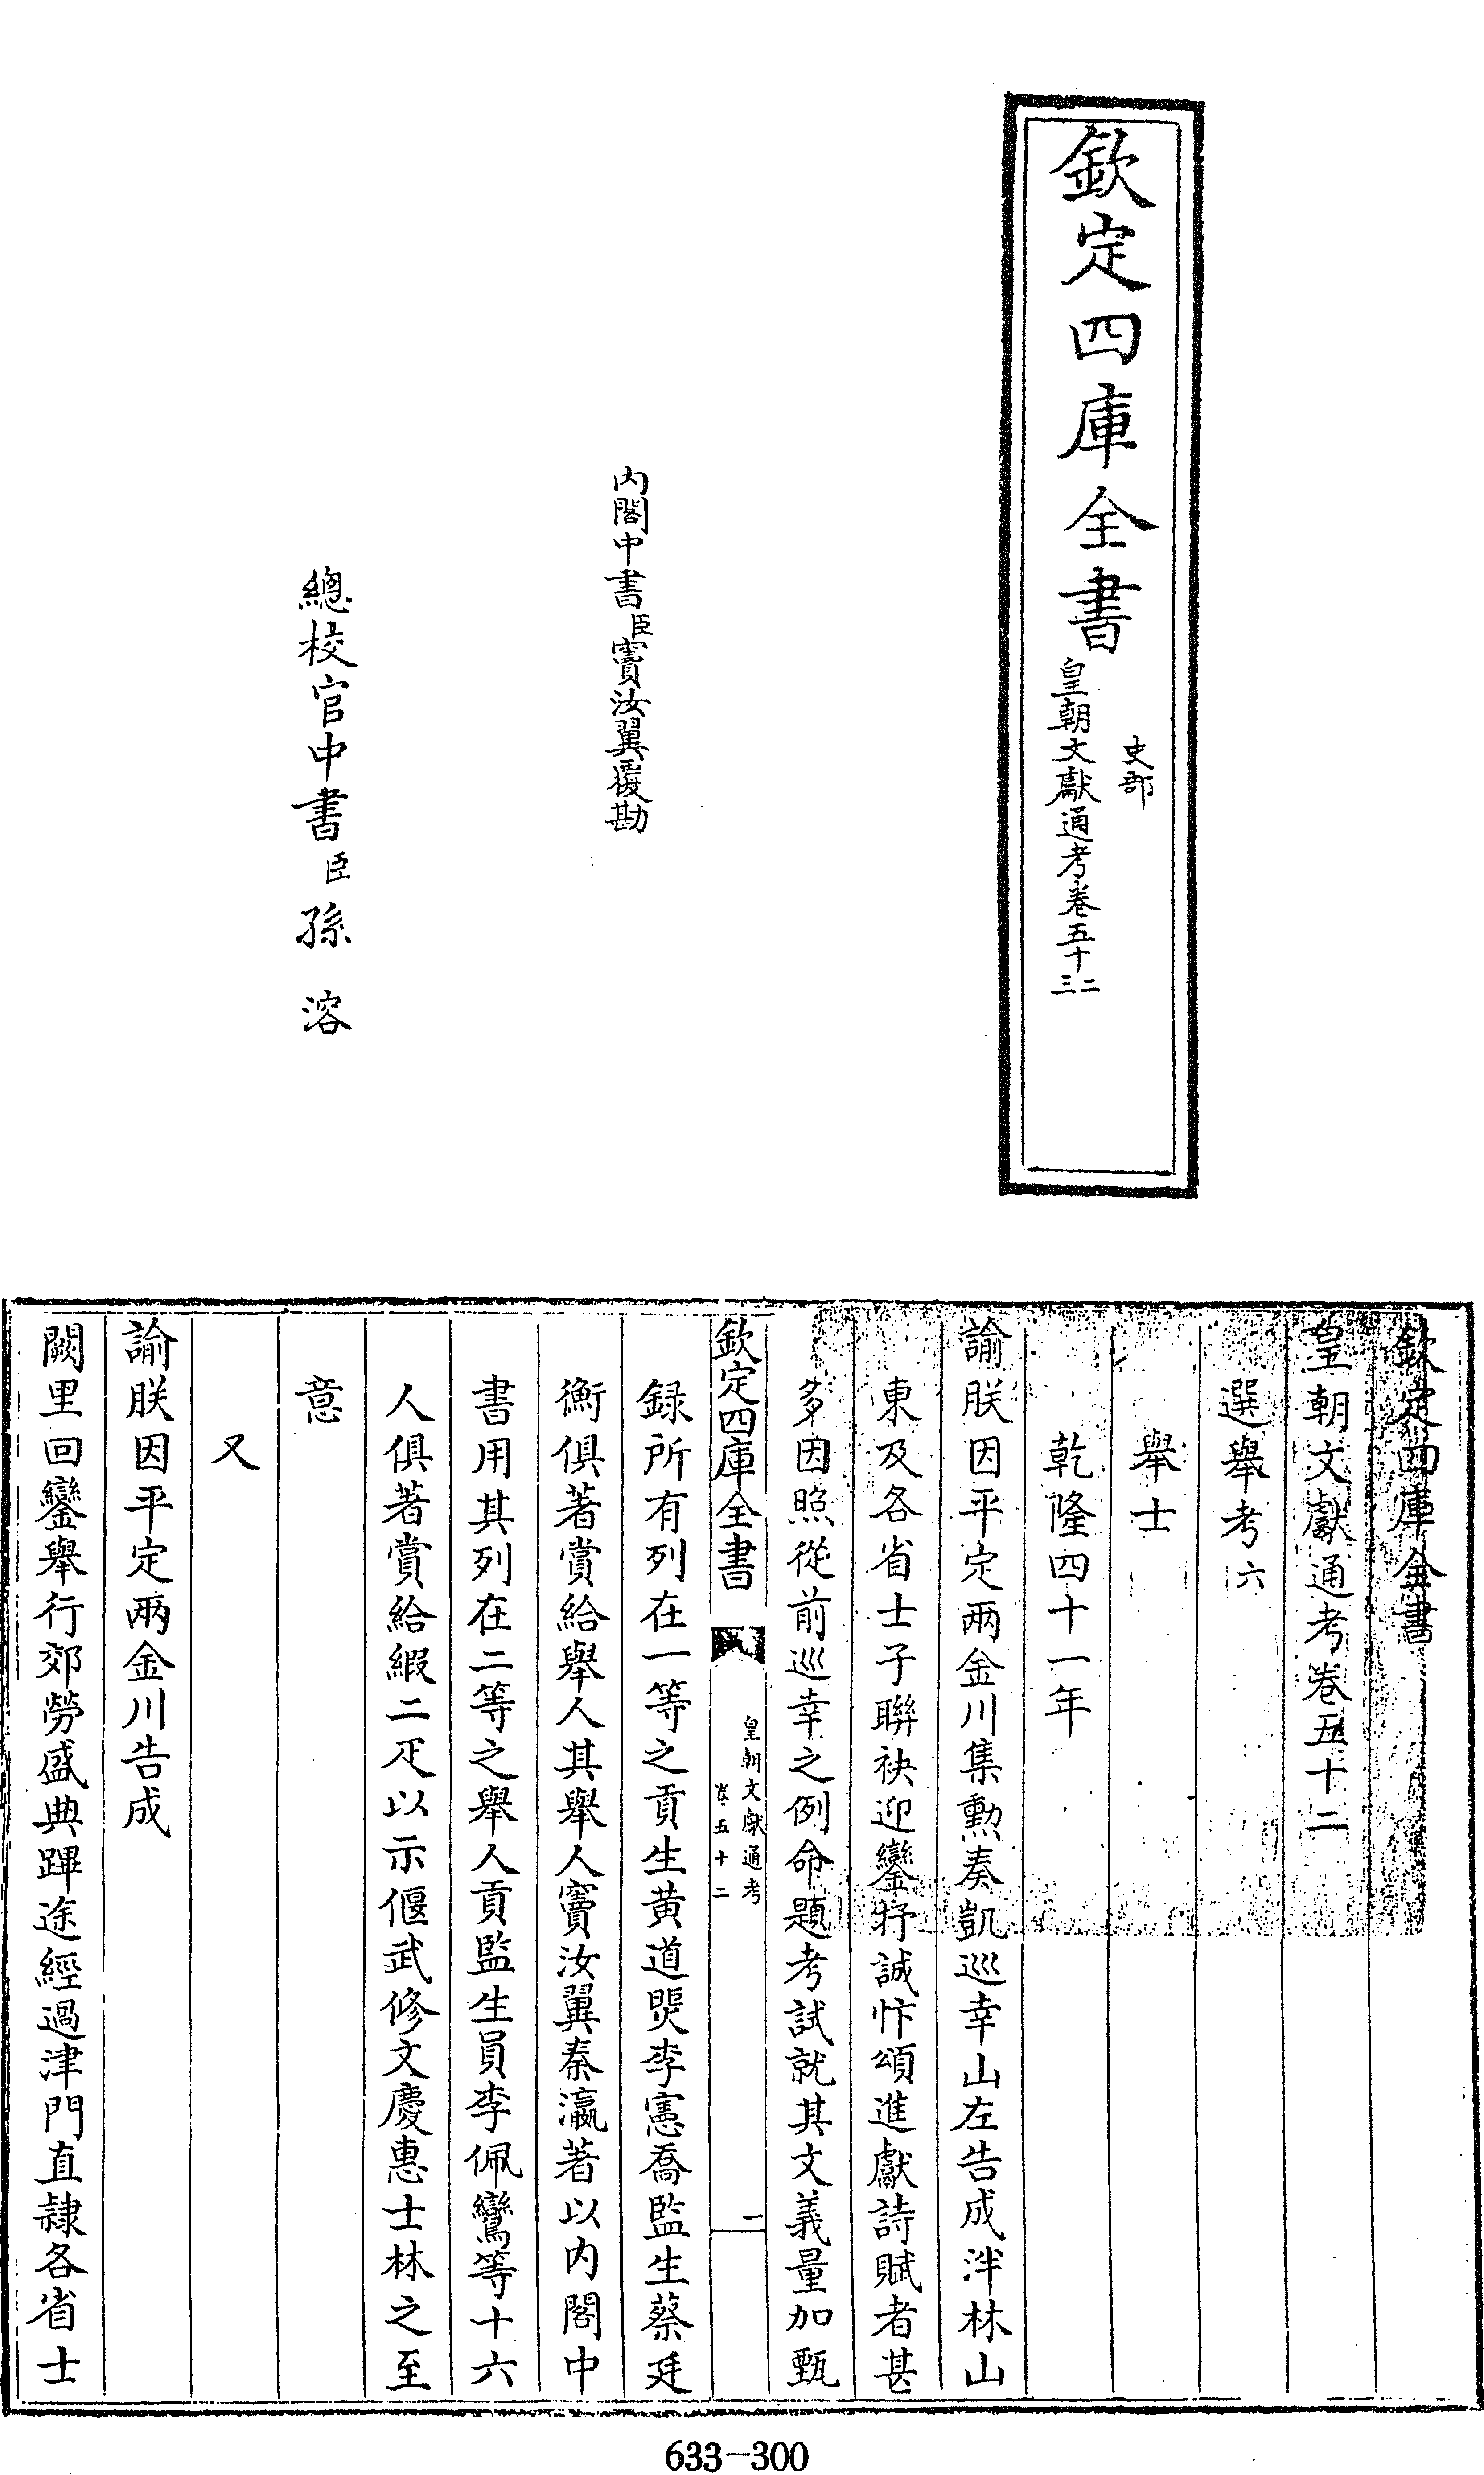 欽定四庫全書
史部
皇朝文獻通考卷五十二
三
内閣中書臣竇汝翼覆勘
總校官中書臣孫溶
欽定四庫全書
皇朝文獻通考卷五十二
選舉考六
舉士
乾隆四十一年
諭朕因平定兩金川集勲奏凱巡幸山左告成泮林山
東及各省士子聨袂迎鑾抒誠忭頌進獻詩賦者甚
多因照從前巡幸之例命題考試就其文義量加甄
欽定四庫全書
皇朝文獻通考
卷五十二
一
録所有列在一等之貢生黄道煚李憲喬監生蔡廷
衡俱著賞給舉人其舉人竇汝翼秦瀛著以内閣中
書用其列在二等之舉人貢監生員李佩鸞等十六
人俱著賞給緞二疋以示偃武修文慶惠士林之至
意
又
諭朕因平定兩金川告成
闕里回鑾舉行郊勞盛典蹕途經過津門直隷各省士
633-300